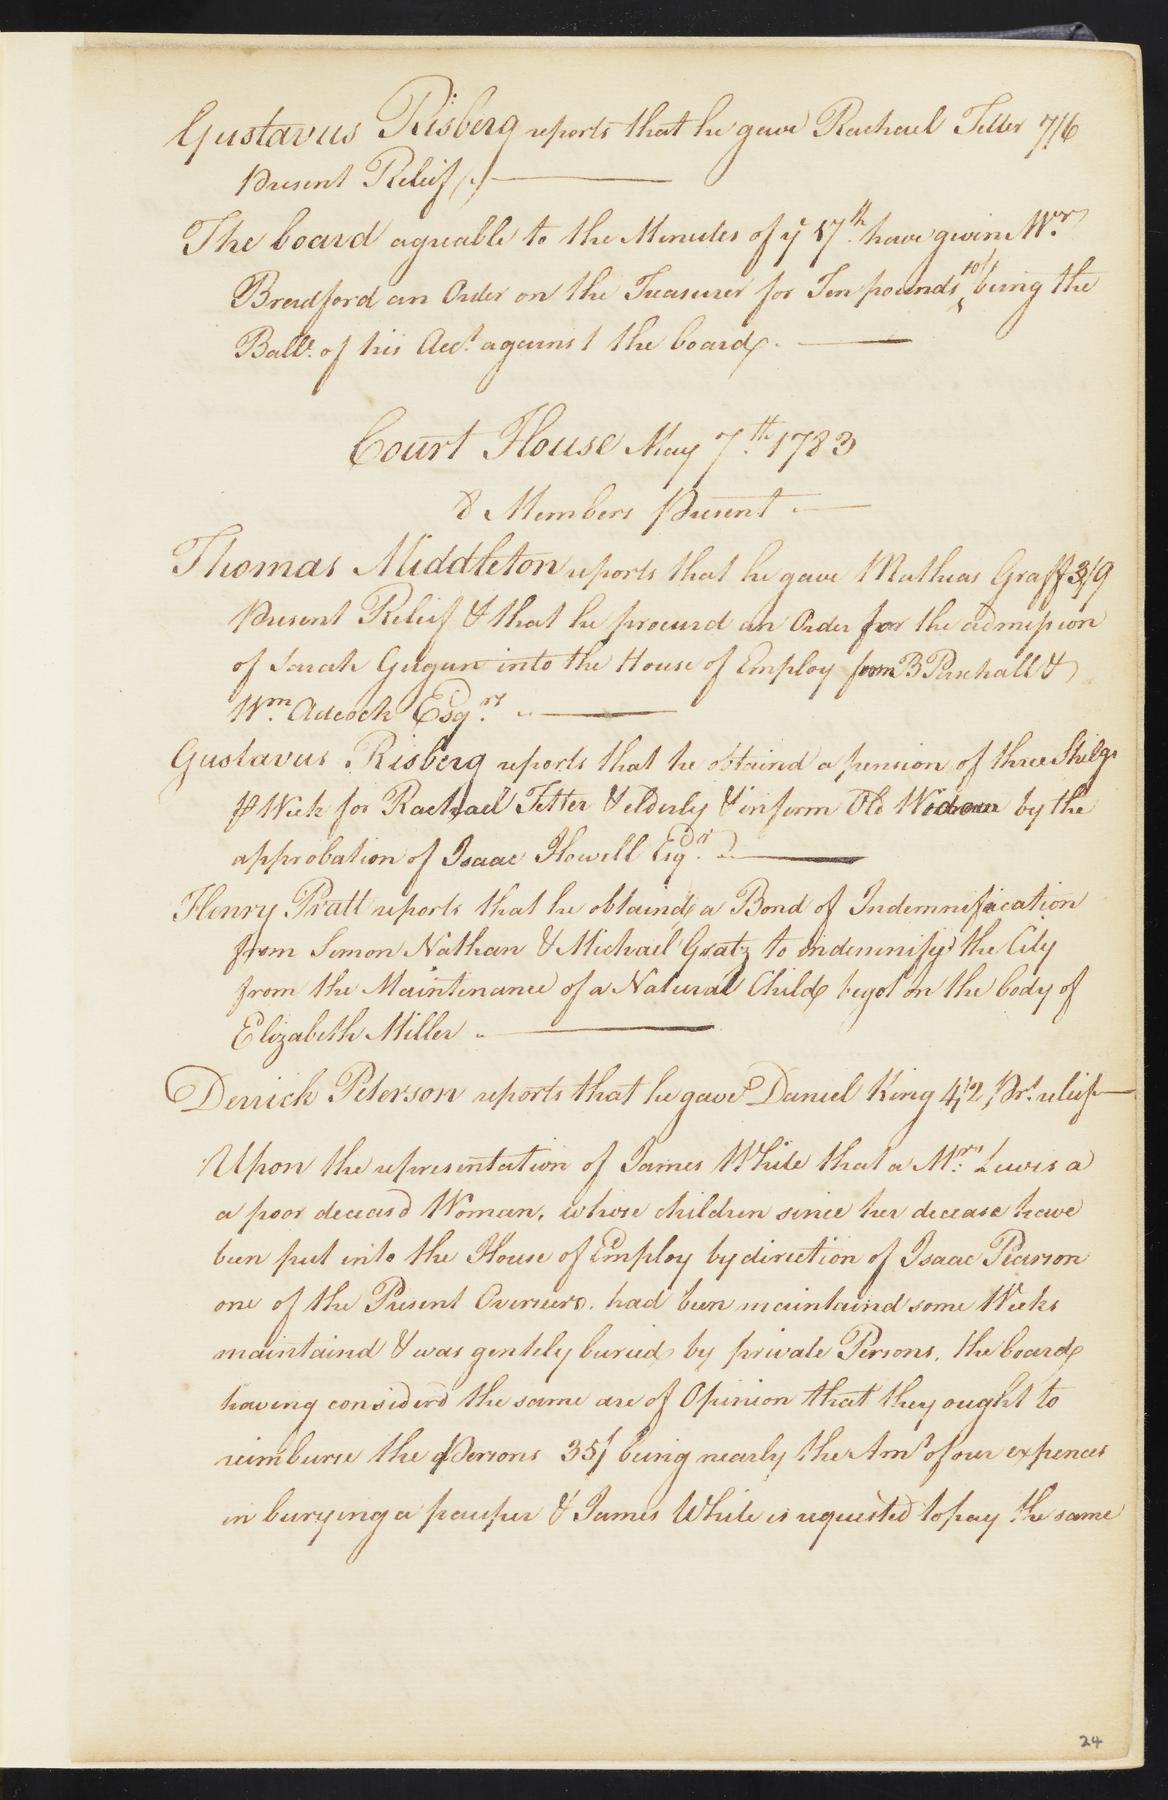 Gustavus Risberg reports that he gave Rachael Tetter 7/6
Present Relief
The board agreable to the Minutes of ye 17th have given Wm
Bradford an Order on the Treasurer for Ten pounds 10/ being the
Balle. of his Acct. against the board.
Court House May 7th 1783
8 Members Present
Thomas Middleton reports that he gave Mathias Graff 3/9
Present Relief & that he procurd an Order for the admission
of Sarah Gugun into the House of Employ from B Paschall &
Wm. Adcock Esqrs.
Gustavus Risberg reports that he obtaind a pension of three Shilgs
⅌ Week for Rachael Tetter & elderly & infirm Old Widow by the
approbation of Isaac Howell Esqr.
Henry Pratt reports that he obtaind a Bond of Indemnifacation
from Simon Nathan & Michael Gratz to indemnify the City
from the Maintenance of a Natural Child begot on the body of
Elizabeth Miller
Derrick Peterson reports that he gave Daniel King 4/2 Prt. relief
Upon the representation of James White that a Mrs. Lewis a
a poor deceasd Woman, whose children since her decease have
been put into the House of Employ by direction of Isaac Pearson
one of the Present Overseers. had been maintaind some Weeks
maintaind & was gentely buried by private Persons, the board
having considerd the same are of Opinion that they ought to
reimburse the Persons 35/ being nearly the Amt of our expences
in burying a pauper & James White is requested to pay the same
24